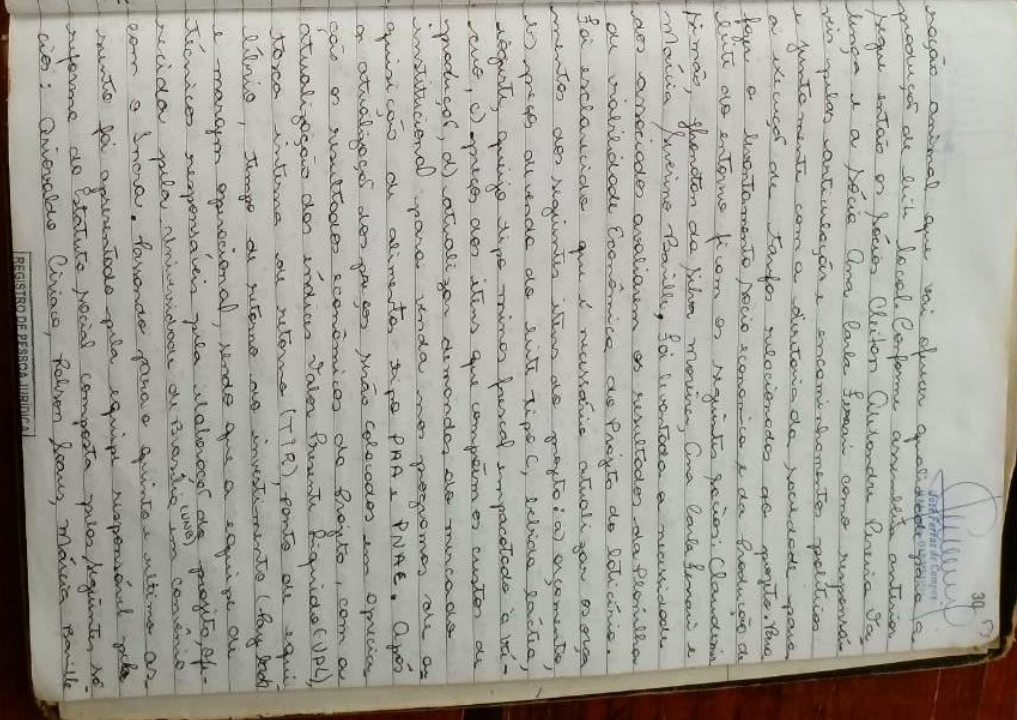 30
ração animal que vai oferecer qualidade da
produção de leite local. Conforme assembléia anterior
segue então os sócios Cleiton Alexandre Pereira da
e a sócia Ana Carla como responsá-
veis pelas articulações e encaminhamentos políticos
e juntamente com a diretoria da sociedade para
a execução de tarefas relacionadas ao projeto. Para
fazer o levantamento sócio econômico e da Produção de
leite do entorno ficam os seguintes sócios: Claudemir
Simão, da Silva Moreira, Ana Carla e
Márcia Barille, foi levantada a necessidade
dos associados avaliarem os resultados da Planilha
de viabilidade Econômica do Projeto do laticínio.
Foi esclarecido que é necessário atualizar os orça
mentos dos seguintes itens do projeto: a) orçamento,
b) preços de venda do leite tipo C, bebida láctea,
iogurte, queijo tipo minas frescal empacotado à vá-
cuo, c) preços dos itens que compõem os custos de
produção, d) atualizar demandas do mercado
institucional para venda nos programas de a
quisição de alimento tipo PAA e PNAE. Após
a atualização dos preços serão colocados em aprecia
ção os resultados econômicos do Projeto, com a
atualização dos índices Valor Presente Líquido (VPL),
taxa interna de retorno (TIR), ponto de equi
líbrio, tempo de retorno do investimento (Pay back)
e margem operacional, sendo que a equipe de
técnicos responsáveis pela elaboração do projeto ofe-
recida pela Universidade de Brasília (UNB) em convênio
com o Incra. Passando para o quinto e ultimo as-
sunto foi apresentado pela equipe responsável pela
reforma do Estatuto Social composta pelos seguintes só
cios: Ciriaco, Robson Soares, Márcia Barille
REGISTRO DE PESSOA JURÍDICA